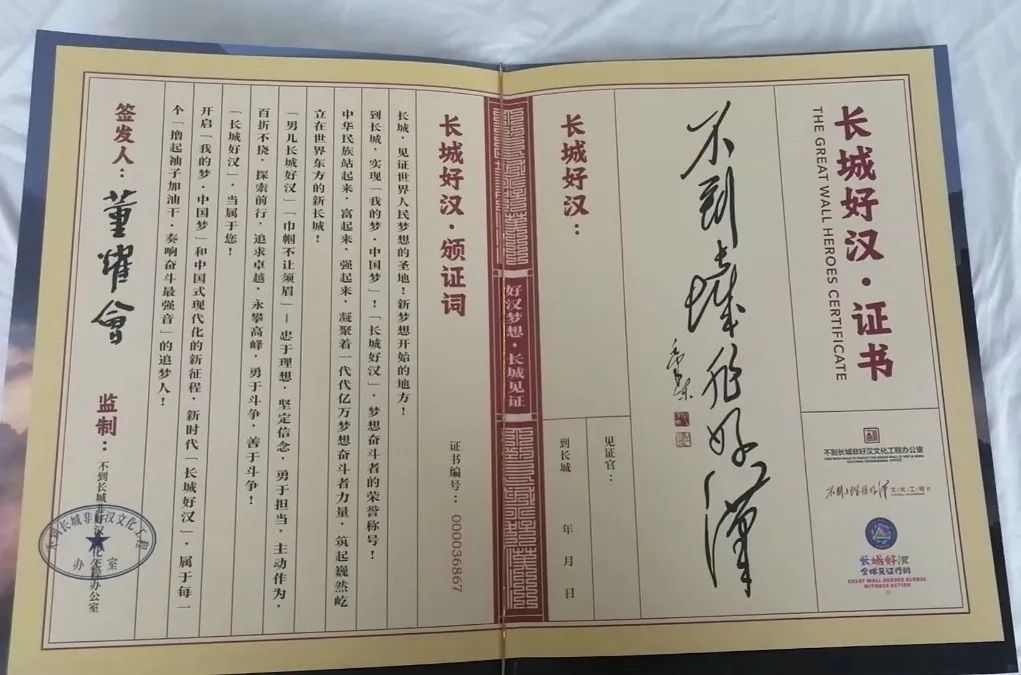 长城好汉·证书
THE GREAT WALL HEROES CERTIFICATE
不到长城非好汉文化工程办公室
不到长城非好汉文化工程
长城好汉
全球见证行动
GREAT WALL HEROES GLOBAL
WITNESS ACTION
不到长城非好汉
毛泽东
长城好汉：
见证官：
到长城 年 月 日
好汉梦想·长城见证
长城好汉·颁证词
证书编号：000036867
长城，见证世界人民梦想的圣地！新梦想开始的地方！
到长城，实现「我的梦·中国梦」！「长城好汉」，梦想奋斗者的荣誉称号！
中华民族站起来，富起来，强起来，凝聚着一代代亿万梦想奋斗者力量，筑起巍然屹
立在世界东方的新长城！
「男儿长城好汉」「巾帼不让须眉」—忠于理想，坚定信念，勇于担当，主动作为，
百折不挠，探索前行，追求卓越，永攀高峰，勇于斗争，善于斗争！
「长城好汉」，当属于您！
开启「我的梦·中国梦」和中国式现代化的新征程，新时代「长城好汉」，属于每一
个「撸起袖子加油干，奏响奋斗最强音」的追梦人！
签发人：董耀会
监制：不到长城非好汉文化工程办公室
不到长城非好汉文化工程
办公室